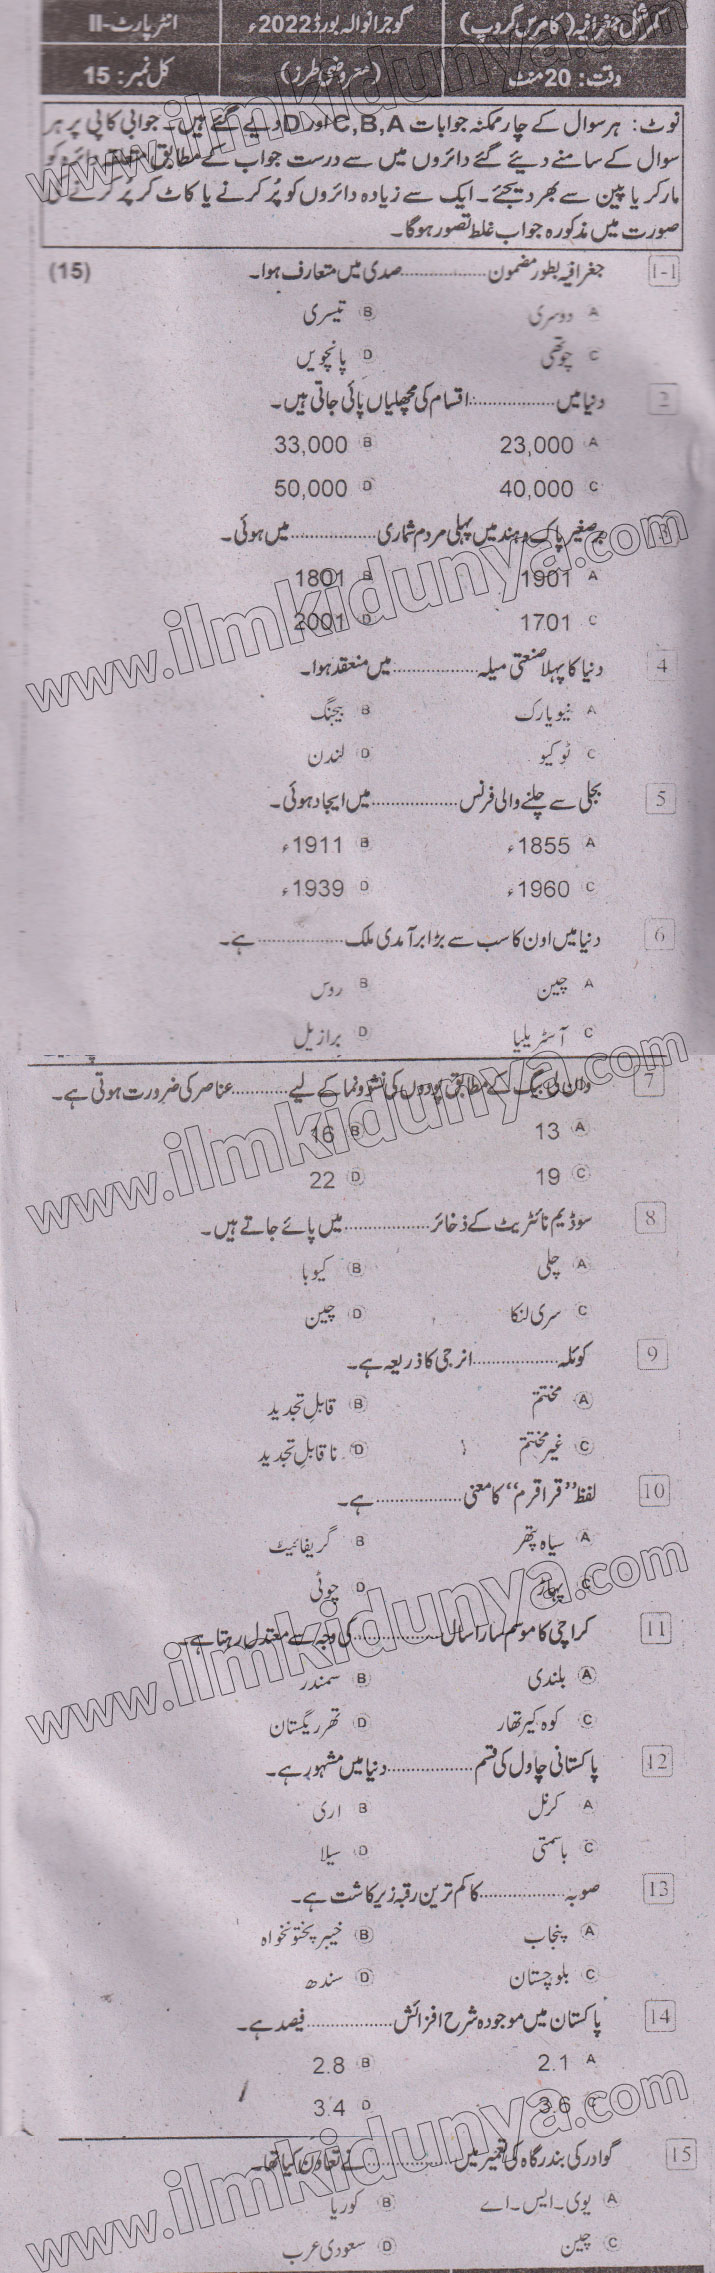 کمرشل جغرافیہ (کامرس گروپ) گوجرانوالہ بورڈ 2022ء انٹر پارٹ-II
وقت: 20 منٹ (معروضی طرز) کل نمبر: 15
نوٹ: ہر سوال کے چار ممکنہ جوابات C,B,A اور D دیئے گئے ہیں۔ جوابی کاپی پر ہر
سوال کے سامنے دیئے گئے دائروں میں سے درست جواب کے مطابق متعلقہ دائرہ کو
مارکر یا پین سے بھر دیجئے۔ ایک سے زیادہ دائروں کو پُر کرنے یا کاٹ کر پُر کرنے کی
صورت میں مذکورہ جواب غلط تصور ہوگا۔
1-1 جغرافیہ بطور مضمون .................. صدی میں متعارف ہوا۔ (15)
A دوسری B تیسری
C چوتھی D پانچویں
2 دنیا میں .................. اقسام کی مچھلیاں پائی جاتی ہیں۔
A 23,000 B 33,000
C 40,000 D 50,000
3 برصغیر پاک و ہند میں پہلی مردم شماری .................. میں ہوئی۔
A 1901 B 1801
C 1701 D 2001
4 دنیا کا پہلا صنعتی میلہ .................. میں منعقد ہوا۔
A نیویارک B بیجنگ
C ٹوکیو D لندن
5 بجلی سے چلنے والی فرنس .................. میں ایجاد ہوئی۔
A 1855ء B 1911ء
C 1960ء D 1939ء
6 دنیا میں اون کا سب سے بڑا برآمدی ملک .................. ہے۔
A چین B روس
C آسٹریلیا D برازیل
7 وان لی بیگ کے مطابق پودوں کی نشوونما کے لیے ............ عناصر کی ضرورت ہوتی ہے۔
A 13 B 16
C 19 D 22
8 سوڈیم نائٹریٹ کے ذخائر .................. میں پائے جاتے ہیں۔
A چلی B کیوبا
C سری لنکا D چین
9 کوئلہ .................. انرجی کا ذریعہ ہے۔
A مختتم B قابلِ تجدید
C غیر مختتم D ناقابلِ تجدید
10 لفظ "قراقرم" کا معنی .................. ہے۔
A سیاہ پتھر B گریفائیٹ
C پہاڑ D چوٹی
11 کراچی کا موسم سارا سال .................. کی وجہ سے معتدل رہتا ہے۔
A بلندی B سمندر
C کوہ کیرتھار D تھر ریگستان
12 پاکستانی چاول کی قسم .................. دنیا میں مشہور ہے۔
A کرنل B اری
C باسمتی D سیلا
13 صوبہ .................. کا کم ترین رقبہ زیر کاشت ہے۔
A پنجاب B خیبر پختونخواہ
C بلوچستان D سندھ
14 پاکستان میں موجودہ شرح افزائش .................. فیصد ہے۔
A 2.1 B 2.8
C 3.6 D 3.4
15 گوادر کی بندرگاہ کی تعمیر میں .................. نے تعاون کیا تھا۔
A یو۔ایس۔اے B کوریا
C چین D سعودی عرب
www.ilmkidunya.com
www.ilmkidunya.com
www.ilmkidunya.com
www.ilmkidunya.com
www.ilmkidunya.com